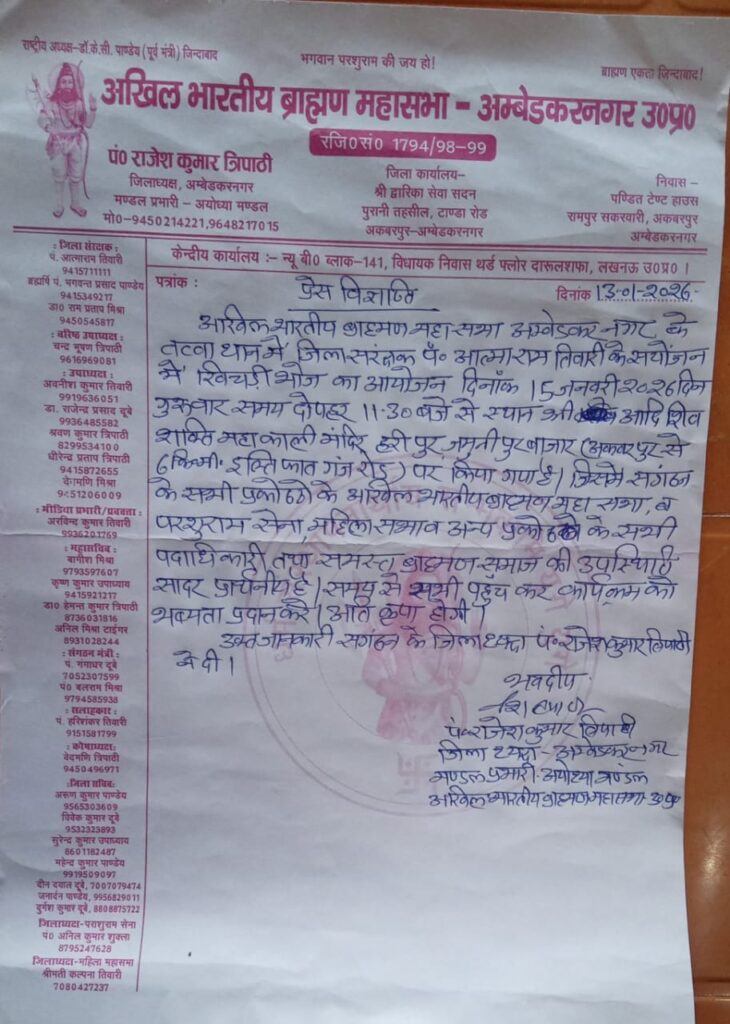 राष्ट्रीय अध्यक्ष-डॉ.के.सी. पाण्डेय (पूर्व मंत्री) जिन्दाबाद
भगवान परशुराम की जय हो!
ब्राह्मण एकता जिन्दाबाद!
अखिल भारतीय ब्राह्मण महासभा - अम्बेडकरनगर उ०प्र०
रजि०सं० 1794/98-99
पं० राजेश कुमार त्रिपाठी
जिलाध्यक्ष, अम्बेडकरनगर
मण्डल प्रभारी - अयोध्या मण्डल
मो०-9450214221,9648217015
जिला कार्यालय-
श्री द्वारिका सेवा सदन
पुरानी तहसील, टाण्डा रोड
अकबरपुर-अम्बेडकरनगर
निवास -
पण्डित टेण्ट हाउस
रामपुर सकरवारी, अकबरपुर
अम्बेडकरनगर
केन्द्रीय कार्यालय :- न्यू बी० ब्लाक-141, विधायक निवास थर्ड फ्लोर दारूलशफा, लखनऊ उ०प्र० ।
पत्रांक :
दिनांक 13-01-2026
: जिला संरक्षक :
पं. आत्माराम तिवारी
9415711111
ब्रह्मर्षि पं. भगवन्त प्रसाद पाण्डेय
9415349217
डा० राम प्रताप मिश्रा
9450545817
: वरिष्ठ उपाध्यक्ष :
चन्द्र भूषण त्रिपाठी
9616969081
: उपाध्यक्ष :
अवनीश कुमार तिवारी
9919636051
डा. राजेन्द्र प्रसाद दूबे
9936485582
श्रवण कुमार त्रिपाठी
8299534100
धीरेन्द्र प्रताप त्रिपाठी
9415872655
वेदमणि त्रिपाठी
9451206009
: मीडिया प्रभारी/प्रवक्ता :
अरविन्द कुमार तिवारी
9936201769
: महासचिव :
बागीश मिश्रा
9793597607
कृष्ण कुमार उपाध्याय
9415921217
डा० हेमन्त कुमार त्रिपाठी
8736031816
अनिल मिश्रा टाइगर
8931028244
: संगठन मंत्री :
पं. गंगाधर दूबे
7052307599
पं० बलराम मिश्रा
9794585938
: सलाहकार :
पं. हरिशंकर तिवारी
9151581799
: कोषाध्यक्ष :
वेदमणि त्रिपाठी
9450496971
:जिला सचिव:
अरूण कुमार पाण्डेय
9565303609
विवेक कुमार दूबे
9532323893
सुरेन्द्र कुमार उपाध्याय
8601182487
महेन्द्र कुमार पाण्डेय
9919509097
दीन दयाल दूबे, 7007079474
जनार्दन पाण्डेय, 9956829011
दुर्गेश कुमार दूबे, 8808875722
जिलाध्यक्ष-परशुराम सेना
पं० अनिल कुमार शुक्ला
8795247628
जिलाध्यक्ष-महिला महासभा
श्रीमती कल्पना तिवारी
7080427237
प्रेस विज्ञप्ति
अखिल भारतीय ब्राह्मण महासभा अम्बेडकर नगर के
तत्वाधान में जिला संरक्षक पं० आत्माराम तिवारी के संयोजन
में खिचड़ी भोज का आयोजन दिनांक 15 जनवरी 2026 दिन
गुरूवार समय दोपहर 11.30 बजे से स्थान श्री आदि शिव
शक्ति महाकाली मंदिर हरीपुर जमुनीपुर बाजार (अकबरपुर से
6 किमी. इल्तिफात गंज रोड) पर किया गया है। जिसमे संगठन
के सभी प्रकोष्ठो के अखिल भारतीय ब्राह्मण महा सभा, व
परशुराम सेना, महिला सभा व अन्य प्रकोष्ठो के सभी
पदाधिकारी तथा समस्त ब्राह्मण समाज की उपस्थिति
सादर प्रार्थनीय है। समय से सभी पहुँच कर कार्यक्रम को
भब्यता प्रदान करे। अति कृपा होगी।
उक्त जानकारी संगठन के जिलाध्यक्ष पं० राजेश कुमार त्रिपाठी
ने दी।
भवदीय
पं० राजेश कुमार त्रिपाठी
जिलाध्यक्ष- अम्बेडकर नगर
मण्डल प्रभारी. अयोध्या मण्डल
अखिल भारतीय ब्राह्मण महासभा उ०प्र०